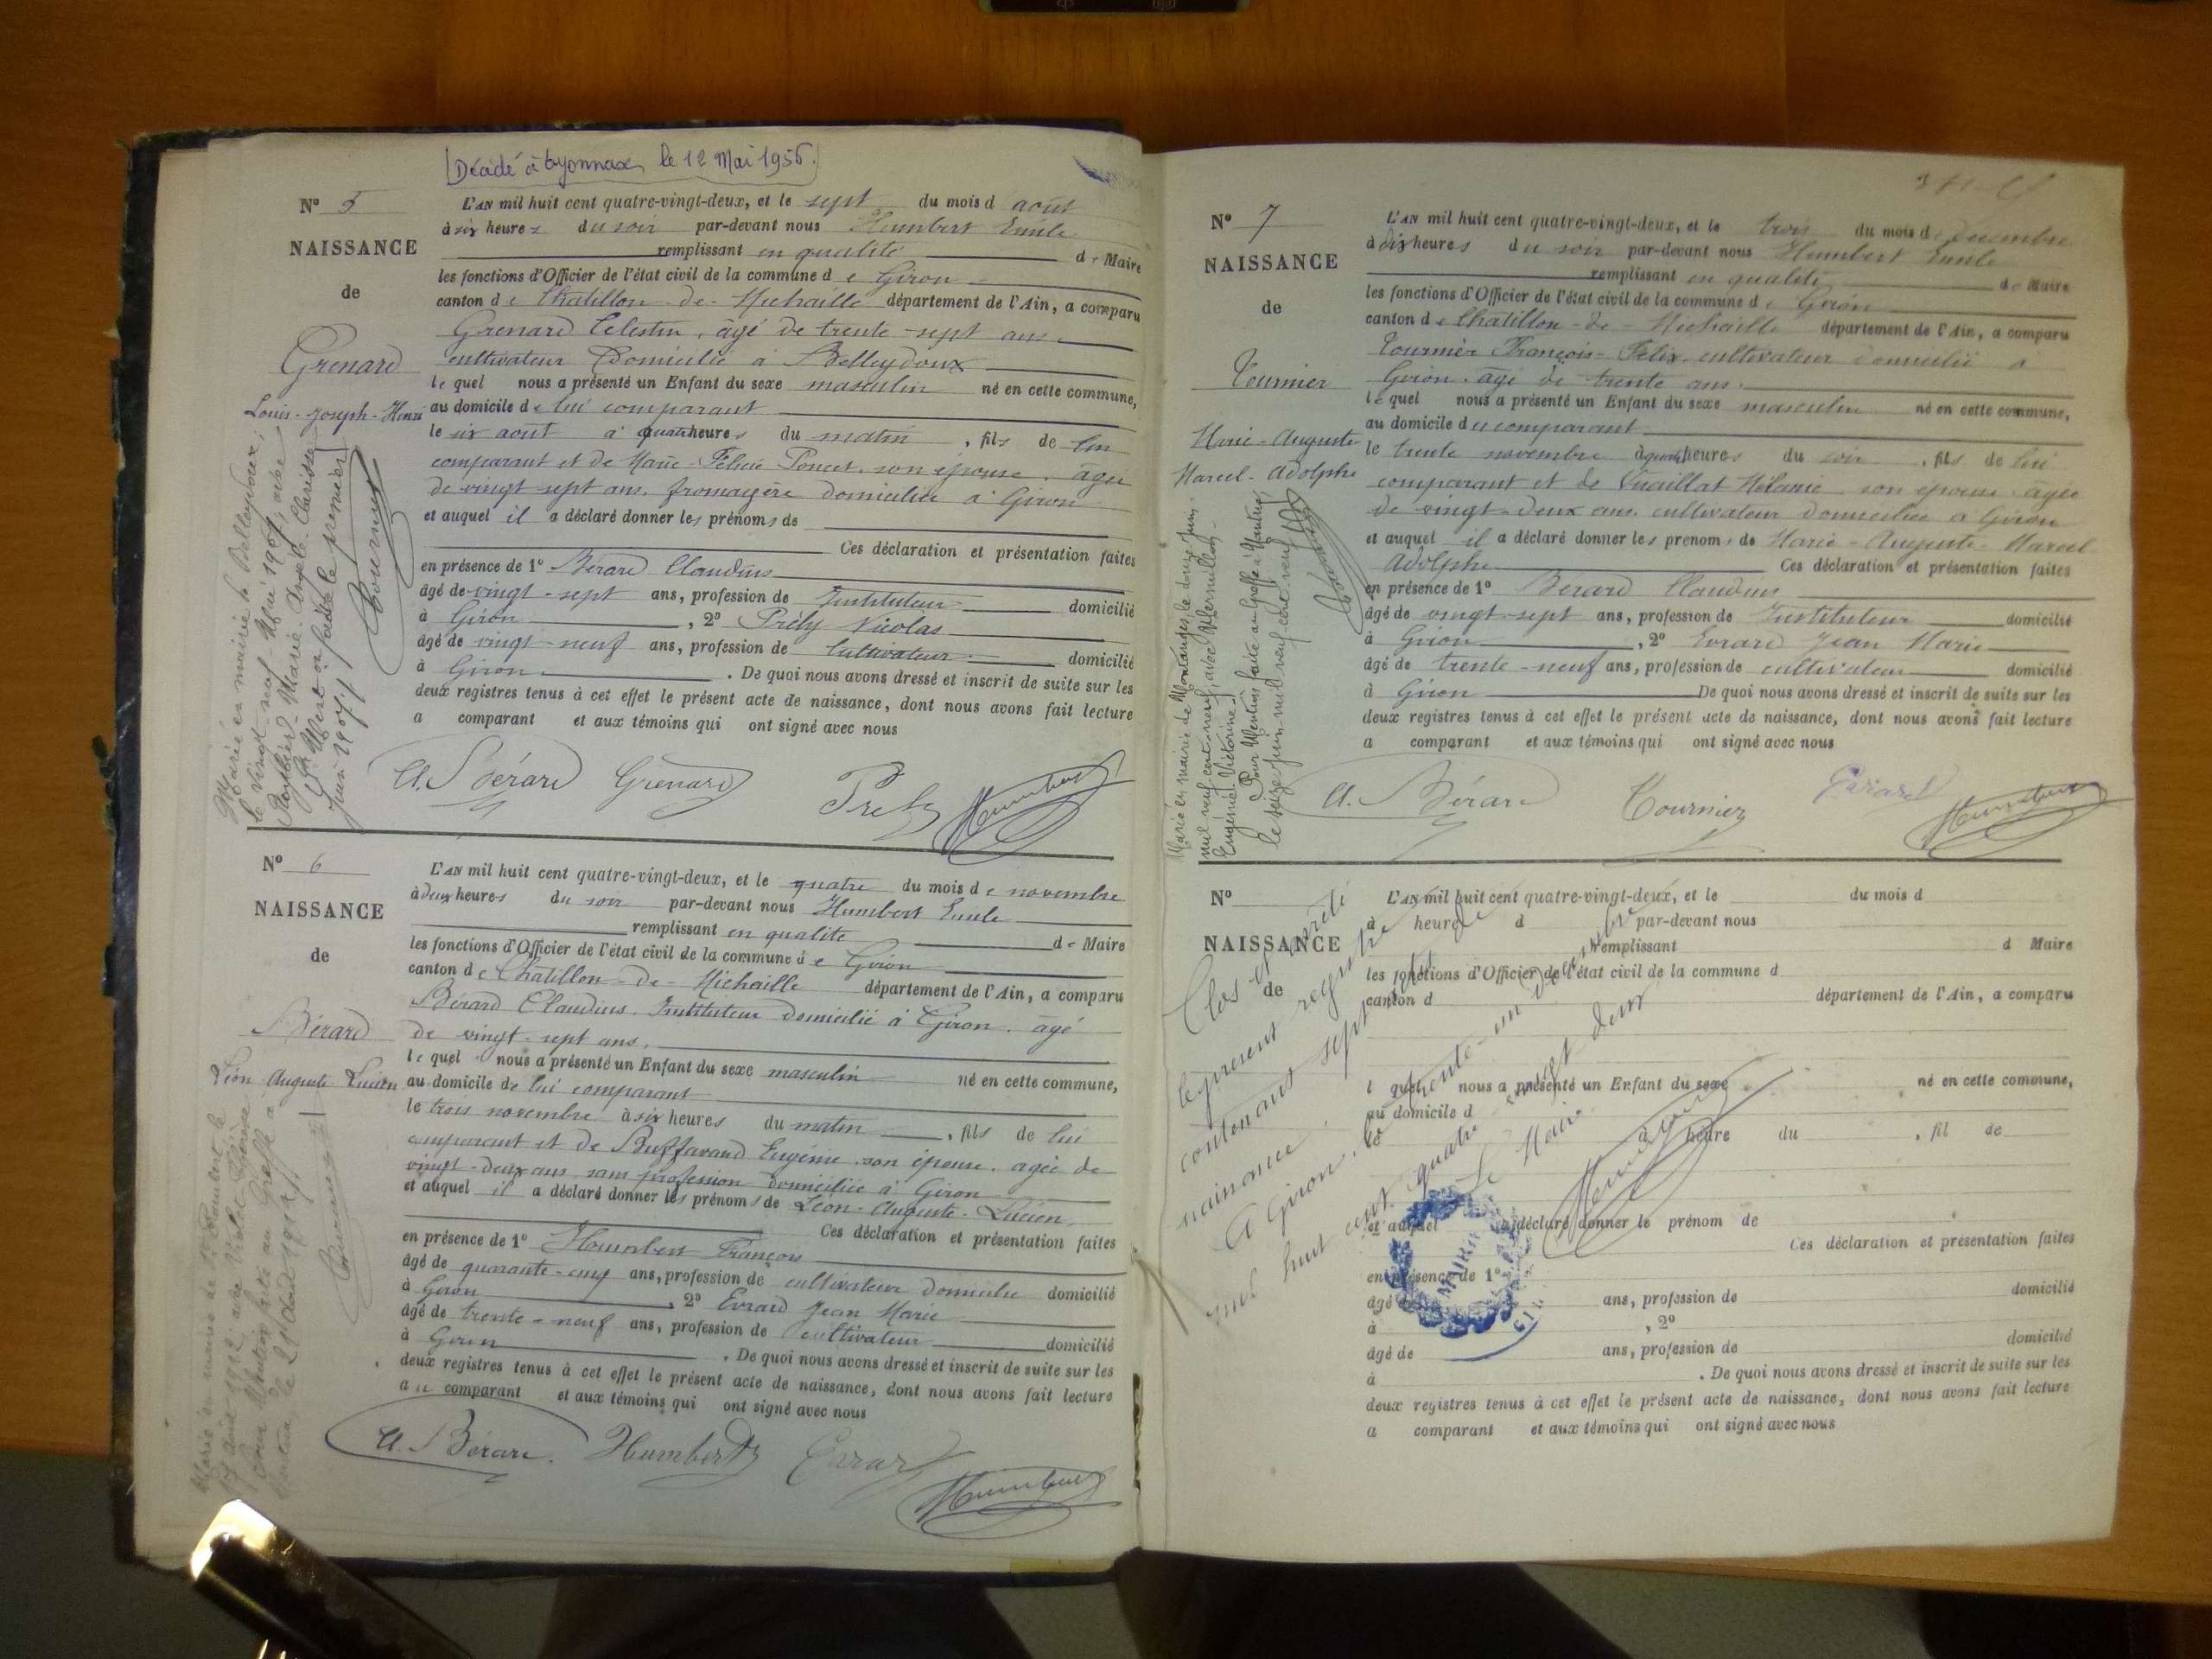 Décédé à Oyonnax le 12 Mai 1956.
N° 5
NAISSANCE
de
Grenard
Louis-Joseph-Henri
L'AN mil huit cent quatre-vingt-deux, et le sept du mois d août
à six heures du soir par-devant nous Humbert Emile
remplissant en qualité de Maire
les fonctions d'Officier de l'état civil de la commune de Giron
canton de Chatillon-de-Michaille département de l'Ain, a comparu
Grenard Celestin, âgé de trente-sept ans
cultivateur domicilié à Belleydoux
lequel nous a présenté un Enfant du sexe masculin né en cette commune,
au domicile de lui comparant
le six août à quatre heures du matin, fils de lui
comparant et de Marie-Félicie Poncet, son épouse, âgée
de vingt-sept ans, fromagère domiciliée à Giron
et auquel il a déclaré donner les prénoms de
Ces déclaration et présentation faites
en présence de 1° Bérard Claudius
âgé de vingt-sept ans, profession de Instituteur domicilié
à Giron, 2° Prély Nicolas
âgé de vingt-neuf ans, profession de Cultivateur domicilié
à Giron. De quoi nous avons dressé et inscrit de suite sur les
deux registres tenus à cet effet le présent acte de naissance, dont nous avons fait lecture
a comparant et aux témoins qui ont signé avec nous
Marié en mairie de Belleydoux,
le vingt-neuf Mai 1907, avec
Marie-Angèle-Clarisse
faite le premier
Juin 1907
Tournier
Cl. Bérard Grenard Prély Humbert
N° 6
NAISSANCE
de
Bérard
Léon Auguste Lucien
L'AN mil huit cent quatre-vingt-deux, et le quatre du mois de novembre
à deux heures du soir par-devant nous Humbert Emile
remplissant en qualité de Maire
les fonctions d'Officier de l'état civil de la commune de Giron
canton de Châtillon-de-Michaille département de l'Ain, a comparu
Bérard Claudius, Instituteur domicilié à Giron, âgé
de vingt-sept ans.
lequel nous a présenté un Enfant du sexe masculin né en cette commune,
au domicile de lui comparant
le trois novembre à six heures du matin, fils de lui
comparant et de Buffavand Eugénie son épouse, agée de
vingt-deux ans sans profession domiciliée à Giron
et auquel il a déclaré donner les prénoms de Léon-Auguste-Lucien
Ces déclaration et présentation faites
en présence de 1° Humbert François
âgé de quarante-cinq ans, profession de cultivateur domicilié domicilié
à Giron, 2° Evrard Jean Marie
âgé de trente-neuf ans, profession de cultivateur domicilié
à Giron. De quoi nous avons dressé et inscrit de suite sur les
deux registres tenus à cet effet le présent acte de naissance, dont nous avons fait lecture
au comparant et aux témoins qui ont signé avec nous
Marié en mairie de St Rambert le
août 1912 avec Violet
pour Mention faite au Greffe à
Nantua, le 21 Août 1912
Cl. Bérard. Humbert Evrard Humbert
N° 7
NAISSANCE
de
Tournier
Marie-Auguste
Marcel-Adolphe
L'AN mil huit cent quatre-vingt-deux, et le trois du mois de decembre
à dix heures du soir par-devant nous Humbert Emile
remplissant en qualité de Maire
les fonctions d'Officier de l'état civil de la commune de Giron
canton de Chatillon-de-Michaille département de l'Ain, a comparu
Tournier François-Félix, cultivateur domicilié à
Giron, âgé de trente ans.
lequel nous a présenté un Enfant du sexe masculin né en cette commune,
au domicile du comparant
le trente novembre à quatre heures du soir, fils de lui
comparant et de Vuaillat Mélanie son épouse âgée
de vingt-deux ans, cultivateur domiciliée à Giron
et auquel il a déclaré donner les prenoms de Marie-Auguste-Marcel
Adolphe Ces déclaration et présentation faites
en présence de 1° Berard Claudius
âgé de vingt-sept ans, profession de Instituteur domicilié
à Giron, 2° Evrard Jean Marie
âgé de trente-neuf ans, profession de cultivateur domicilié
à Giron De quoi nous avons dressé et inscrit de suite sur les
deux registres tenus à cet effet le présent acte de naissance, dont nous avons fait lecture
a comparant et aux témoins qui ont signé avec nous
Marié en mairie de Montanges, le douze Juin
mil neuf cent neuf, avec Vermillon,
Eugénie Victorine.
Pour Mention faite au Greffe à Nantua,
le seize juin mil neuf cent neuf
Cl. Bérard Tournier Evrard Humbert
N°
NAISSANCE
de
L'AN mil huit cent quatre-vingt-deux, et le du mois d
à heure d par-devant nous
remplissant d Maire
les fonctions d'Officier de l'état civil de la commune d
canton d département de l'Ain, a comparu
l quel nous a présenté un Enfant du sexe né en cette commune,
au domicile d
le à heure du , fil de
et auquel a déclaré donner le prénom de
Ces déclaration et présentation faites
en présence de 1°
âgé de ans, profession de domicilié
à , 2°
âgé de ans, profession de domicilié
à . De quoi nous avons dressé et inscrit de suite sur les
deux registres tenus à cet effet le présent acte de naissance, dont nous avons fait lecture
a comparant et aux témoins qui ont signé avec nous
Clos et arrêté
le présent registre
contenant sept actes de
naissance.
A Giron, le trente-un décembre
mil huit cent quatre vingt deux
Le Maire
Humbert
MAIRIE